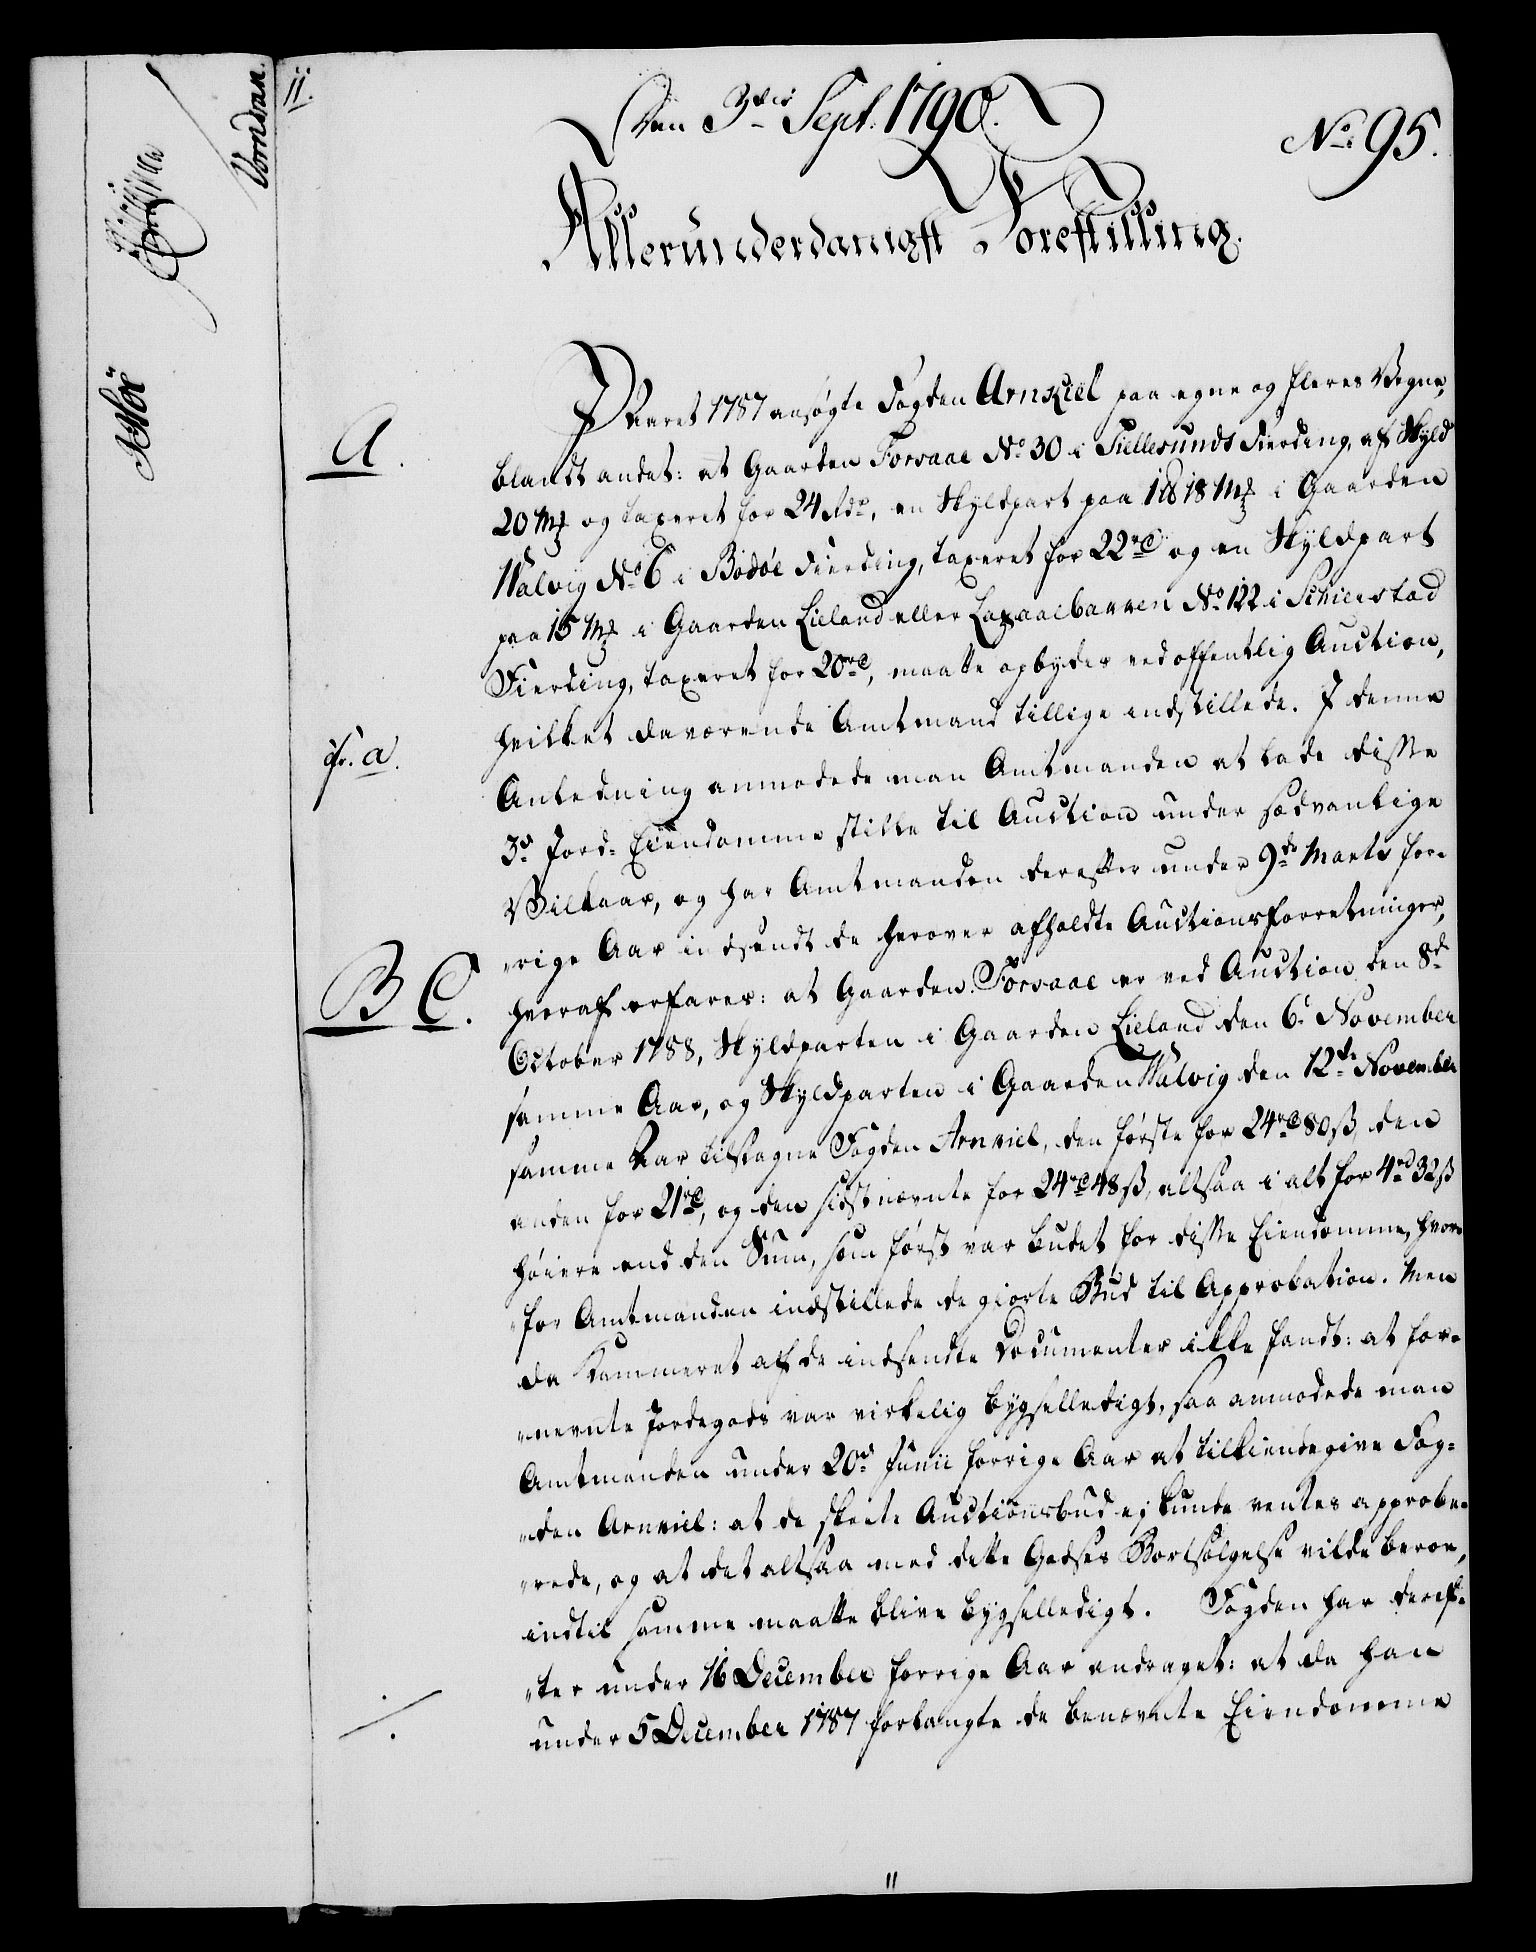 Den 3die Sept. 1790.
No 95.
Allerunderdanigst Forestilling.
A.
I Aaret 1787 ansøgte Fogden Arnkiel paa egne og fleres Vegne,
blandt andet: at Gaarden Forsaae No 30 i Siellesunds Fierding, af Skyld
20 Mk og taxeret for 24 Rdr, en Skyldpart paa 1 W 18 Mk i Gaarden
Walvig No 6 i Bodøe Fierding, taxeret for 22 rd og en Skyldpart
paa 15 Mk i Gaarden Lieland eller Laxaaebakken No 122 i Schierstad
Fierding, taxeret for 20 rd, maatte opbydes ved offentlig Auction,
hvilket daværende Amtmand tillige indstillede. I denne
cfr. a.
Anledning anmodede man Amtmanden at lade disse
3de Jord-Eiendomme stille til Auction under sædvanlige
Vilkaar, og har Amtmanden derefter under 9de Marts for-
rige Aar indsendt de herover afholdte Auctionsforretninger,
B C.
hvoraf erfares: at Gaarden Forsaae er ved Auction den 8de
October 1788, Skyldparten i Gaarden Lieland den 6. November
samme Aar, og Skyldparten i Gaarden Walvig den 12te November
samme Aar tilslagne Fogden Arnkiel, den første for 24 rd 80 ß, den
anden for 21 rd, og den sidstnævnte for 24 rd 48 ß, altsaa i alt for 4 rd 32 ß
høiere end den Sum, som først var budet for disse Eiendomme, hvor-
for Amtmanden indstillede de giorte Bud til Approbation. Men
da Kammeret af de indsendte Documenter ikke fandt: at for-
nevnte Jordegods var virkelig bygselledigt, saa anmodede man
Amtmanden under 20de Junii forrige Aar at tilkiendegive Fog-
den Arnkiel: at de skeete Auctionsbud ej kunde ventes approbe-
rede, og at det altsaa med dette Godses Bortsælgelse vilde beroe,
indtil samme maatte blive bygselledigt. Fogden har deref-
ter under 16 December forrige Aar andraget: at da han
under 5 December 1787 forlangte de benævnte Eiendomme
11